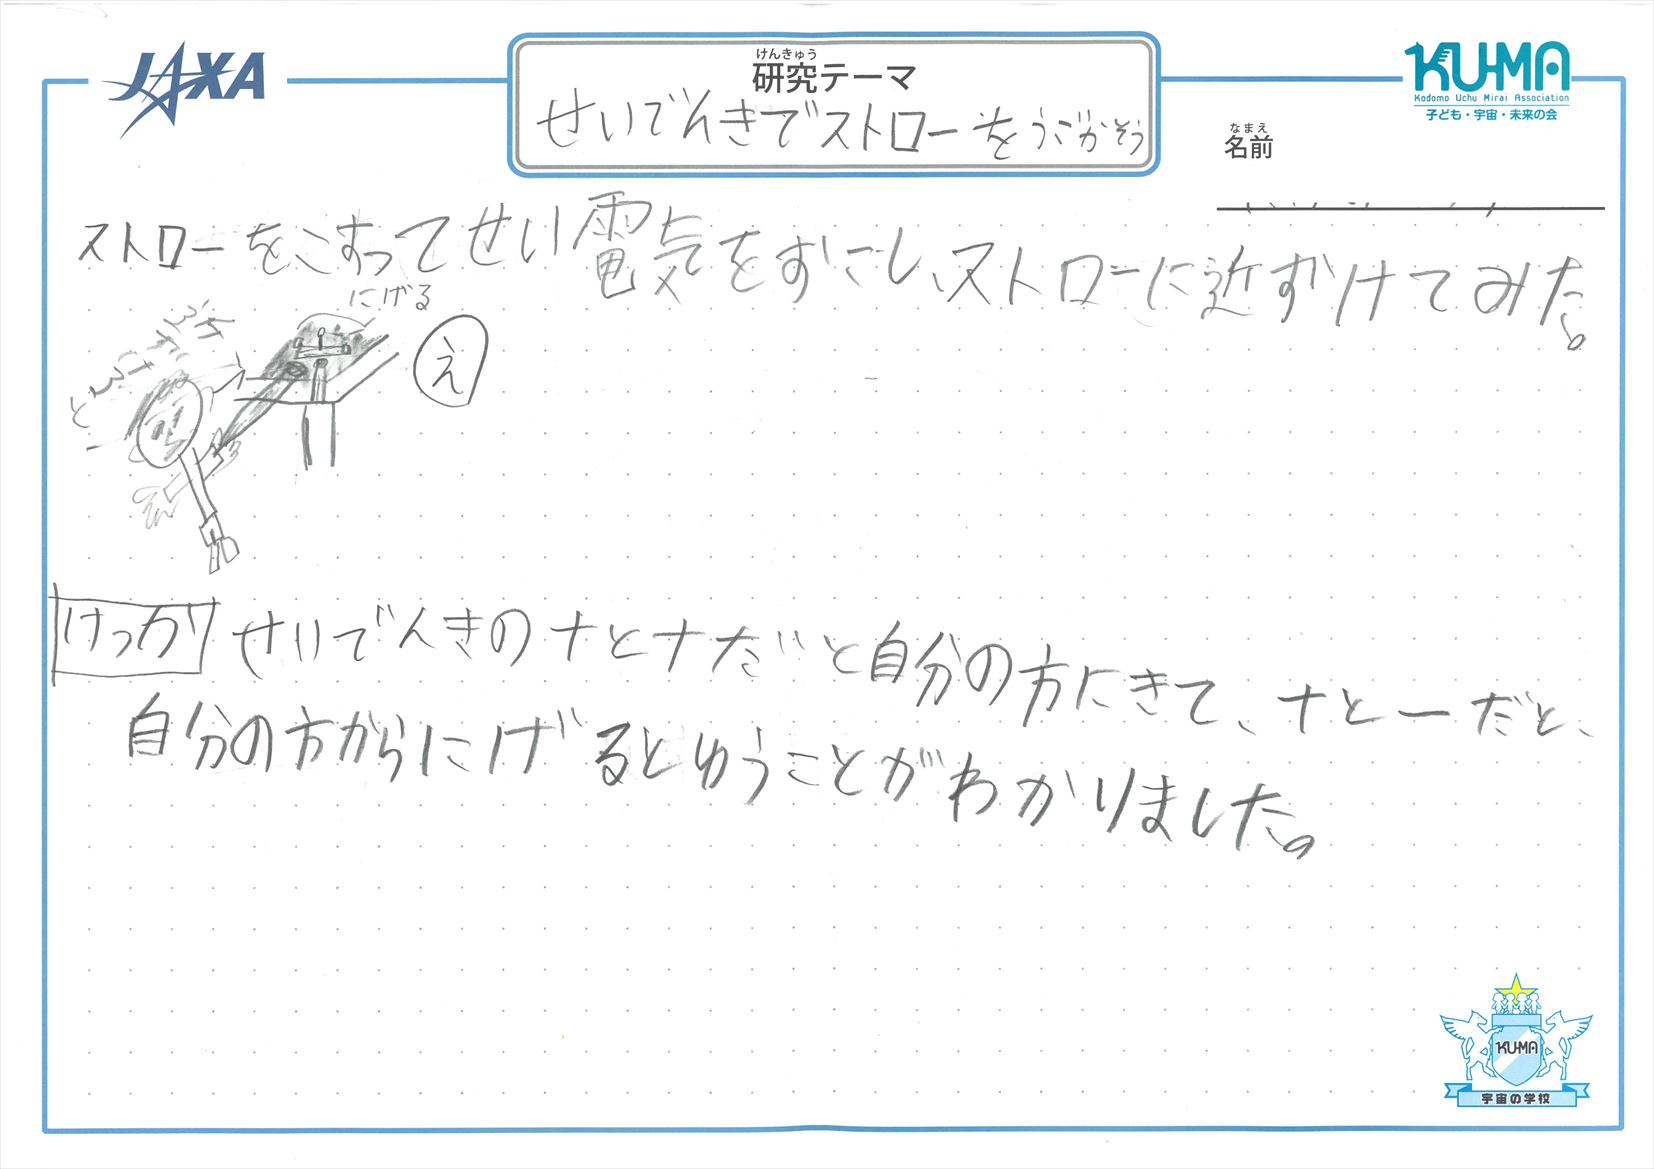 JAXA
けんきゅう
研究テーマ
せいでんきでストローをうごかそう
KU-MA
Kodomo Uchu Mirai Association
子ども・宇宙・未来の会
なまえ
名前
ストローをこすってせい電気をおこし、ストローに近ずけてみた。
にげる
え
けっか せいでんきの+と+だと自分の方にきて、+と−だと、
自分の方からにげるとゆうことがわかりました。
KU-MA
宇宙の学校